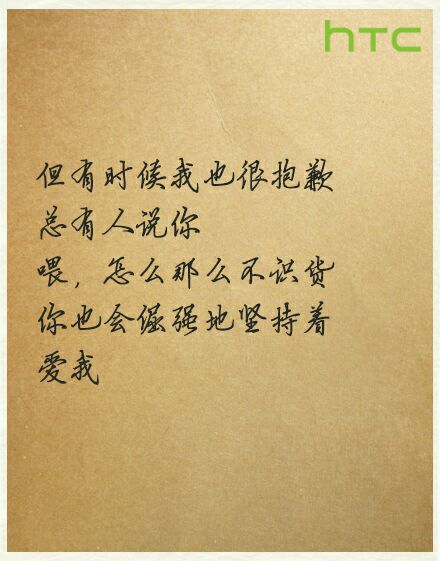 hTC
但有时候我也很抱歉
总有人说你
喂，怎么那么不识货
你也会倔强地坚持着
爱我